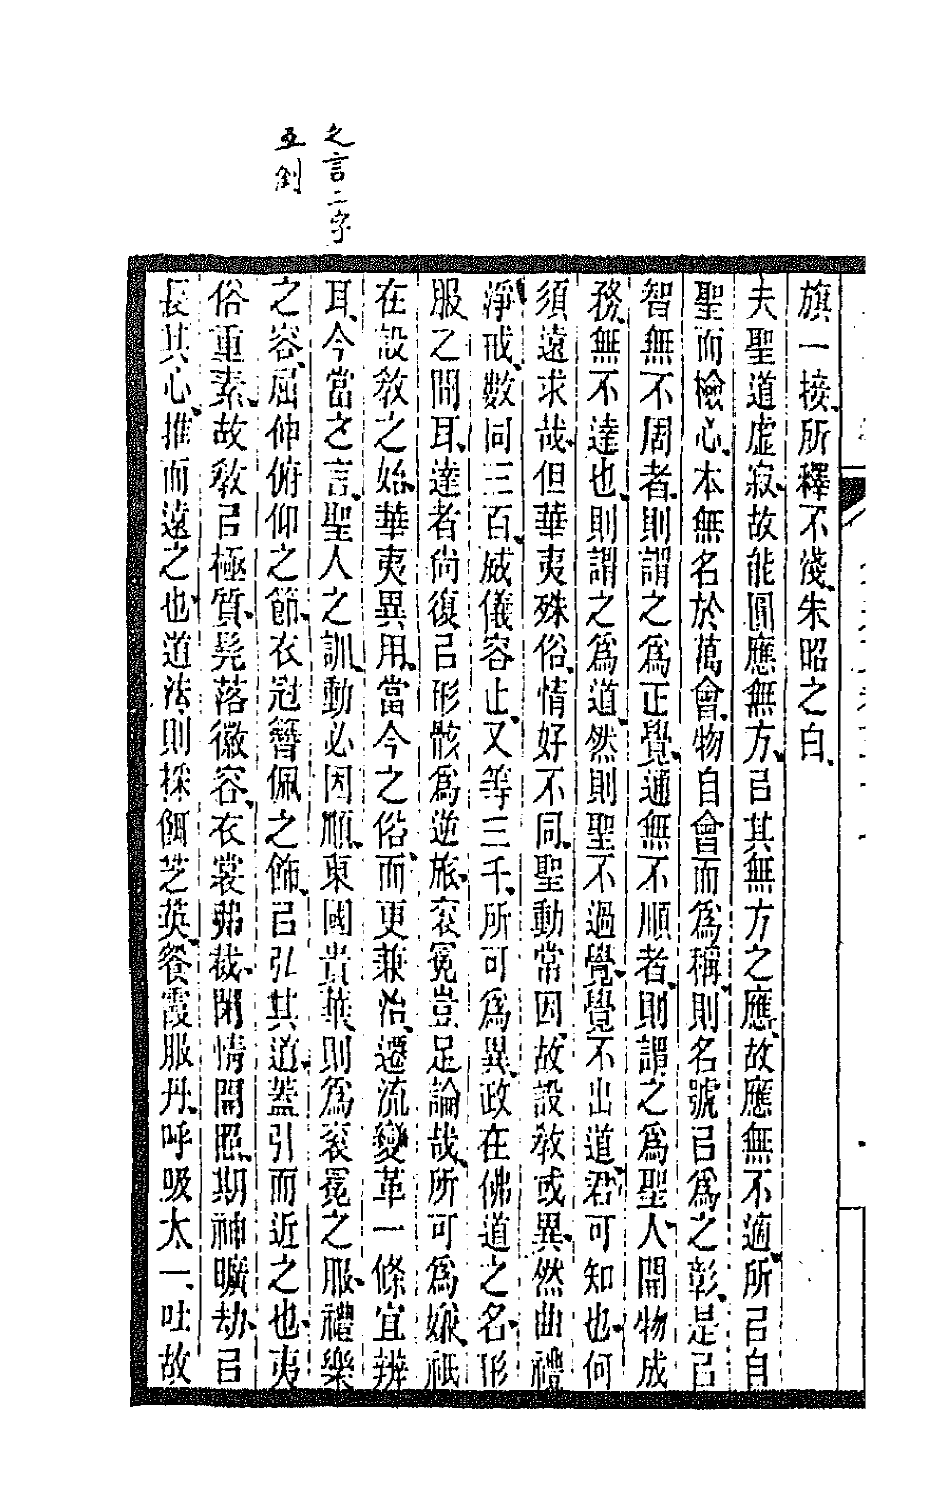 之言二字
互倒
旗一接、所釋不淺、朱昭之白、
夫聖道虛寂、故能圓應無方、㠯其無方之應、故應無不適、所㠯自
聖而檢心、本無名於萬會、物自會而爲稱、則名號㠯爲之彰、是㠯
智無不周者、則謂之爲正覺、通無不順者、則謂之爲聖人、開物成
務、無不達也、則謂之爲道、然則聖不過覺、覺不出道、君可知也、何
須遠求哉、但華夷殊俗、情好不同、聖動常因、故設敎或異、然曲禮
淨戒、數同三百、威儀容止、又等三千、所可爲異、政在佛道之名、形
服之間耳、達者尚復㠯形骸爲逆旅、袞冕豈足論哉、所可爲嫌、祇
在設敎之始、華夷異用、當今之俗、而更兼治、遷流變革、一條宜辨
耳、今當之言、聖人之訓、動必因順、東國貴華、則爲袞冕之服、禮樂
之容、屈伸俯仰之節、衣冠簪佩之飾、㠯弘其道、蓋引而近之也、夷
俗重素、故敎㠯極質、髡落徽容、衣裳弗裁、閑情開照、期神曠劫、㠯
長其心、推而遠之也、道法則採餌芝英、餐霞服丹、呼吸太一、吐故